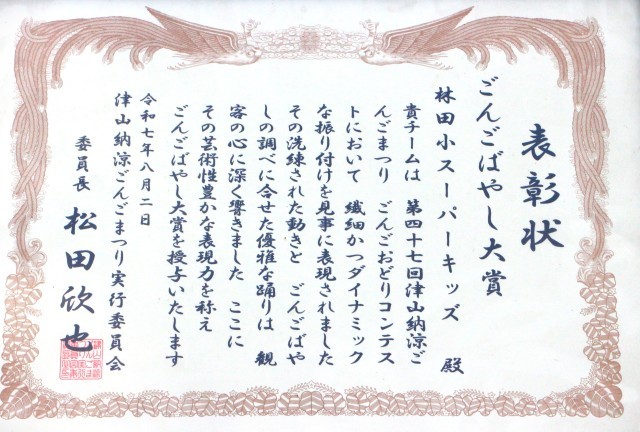 表彰状
ごんごばやし大賞
林田小スーパーキッズ 殿
貴チームは 第四十七回津山納涼ご
んごまつり ごんごおどりコンテス
トにおいて 繊細かつダイナミック
な振り付けを見事に表現されました
その洗練された動きと ごんごばや
しの調べに合せた優雅な踊りは 観
客の心に深く響きました ここに
その芸術性豊かな表現力を称え
ごんごばやし大賞を授与いたします
令和七年八月二日
津山納涼ごんごまつり実行委員会
委員長 松田欣也